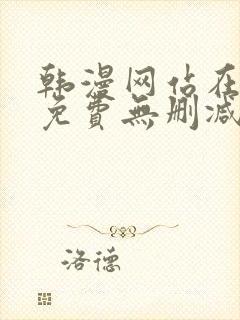 韩漫网站在
免費無删减
洛德